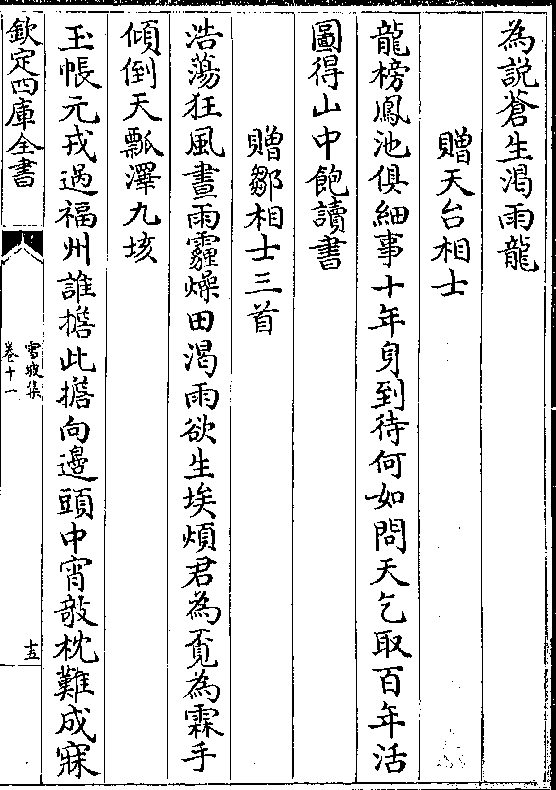 為説蒼生渴雨龍
贈天台相士
龍榜鳳池俱細事十年身到待何如問天乞取百年活
圖得山中飽讀書
贈鄒相士三首
浩蕩狂風晝雨霾燥田渴雨欲生埃煩君為覓為霖手
傾倒天瓢澤九垓
玉帳元戎過福州誰擔此擔向邊頭中宵敧枕難成寐
欽定四庫全書
雪坡集
卷十一
十五